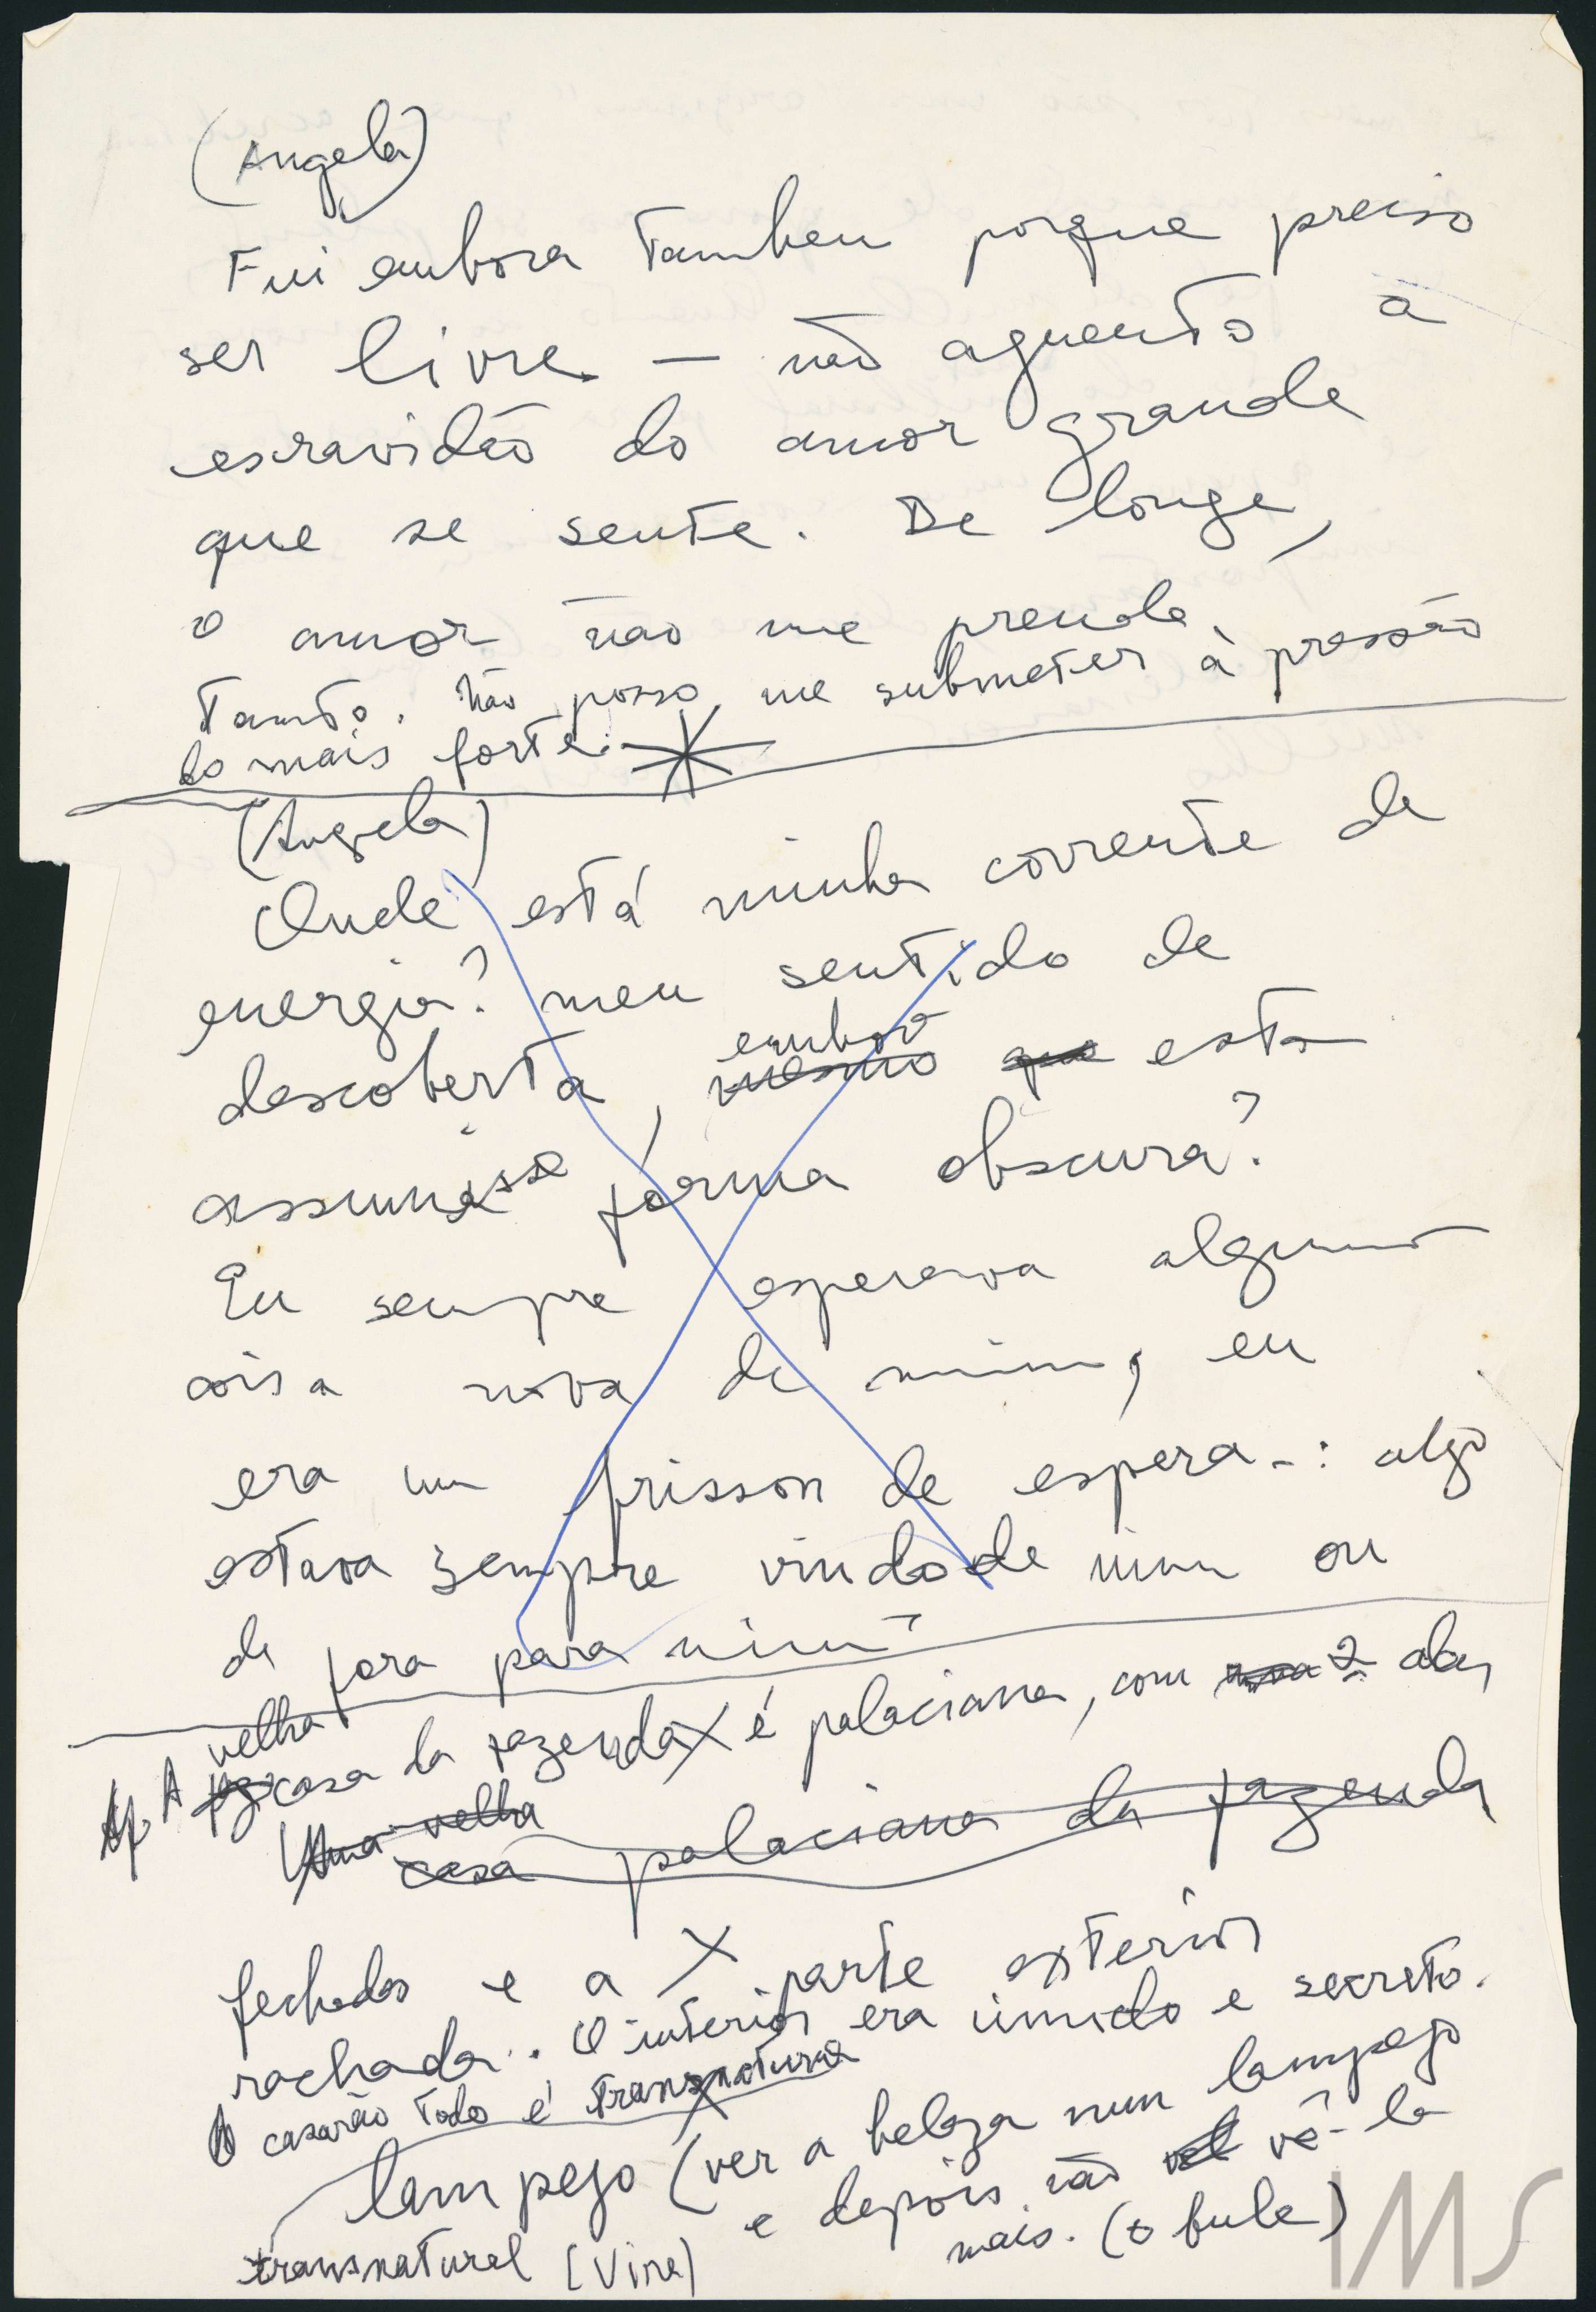 (Angela)
Fui embora tambem porque preciso
ser livre — não aguento a
escravidão do amor grande
que se sente. De longe,
o amor não me prende
tanto. Não posso me submeter à pressão
do mais forte.
(Angela)
Onde está minha corrente de
energia? meu sentido de
embora
descoberta, mesmo que esta
assumisse forma obscura?
Eu sempre esperava alguma
coisa nova de mim, eu
era um frisson de espera-: algo
estava sempre vindo de mim ou
de fora para mim
velha
A casa da fazenda X é palaciana, com 2 alas
Uma velha
casa palaciana da fazenda
fechadas e a X parte exterior
rachada. O interior era úmido e secreto.
O casarão todo é transnatural
lampejo (ver a beleza num lampejo
e depois não vê-la
transnatural (Vire)
mais. (o bule)
IMS